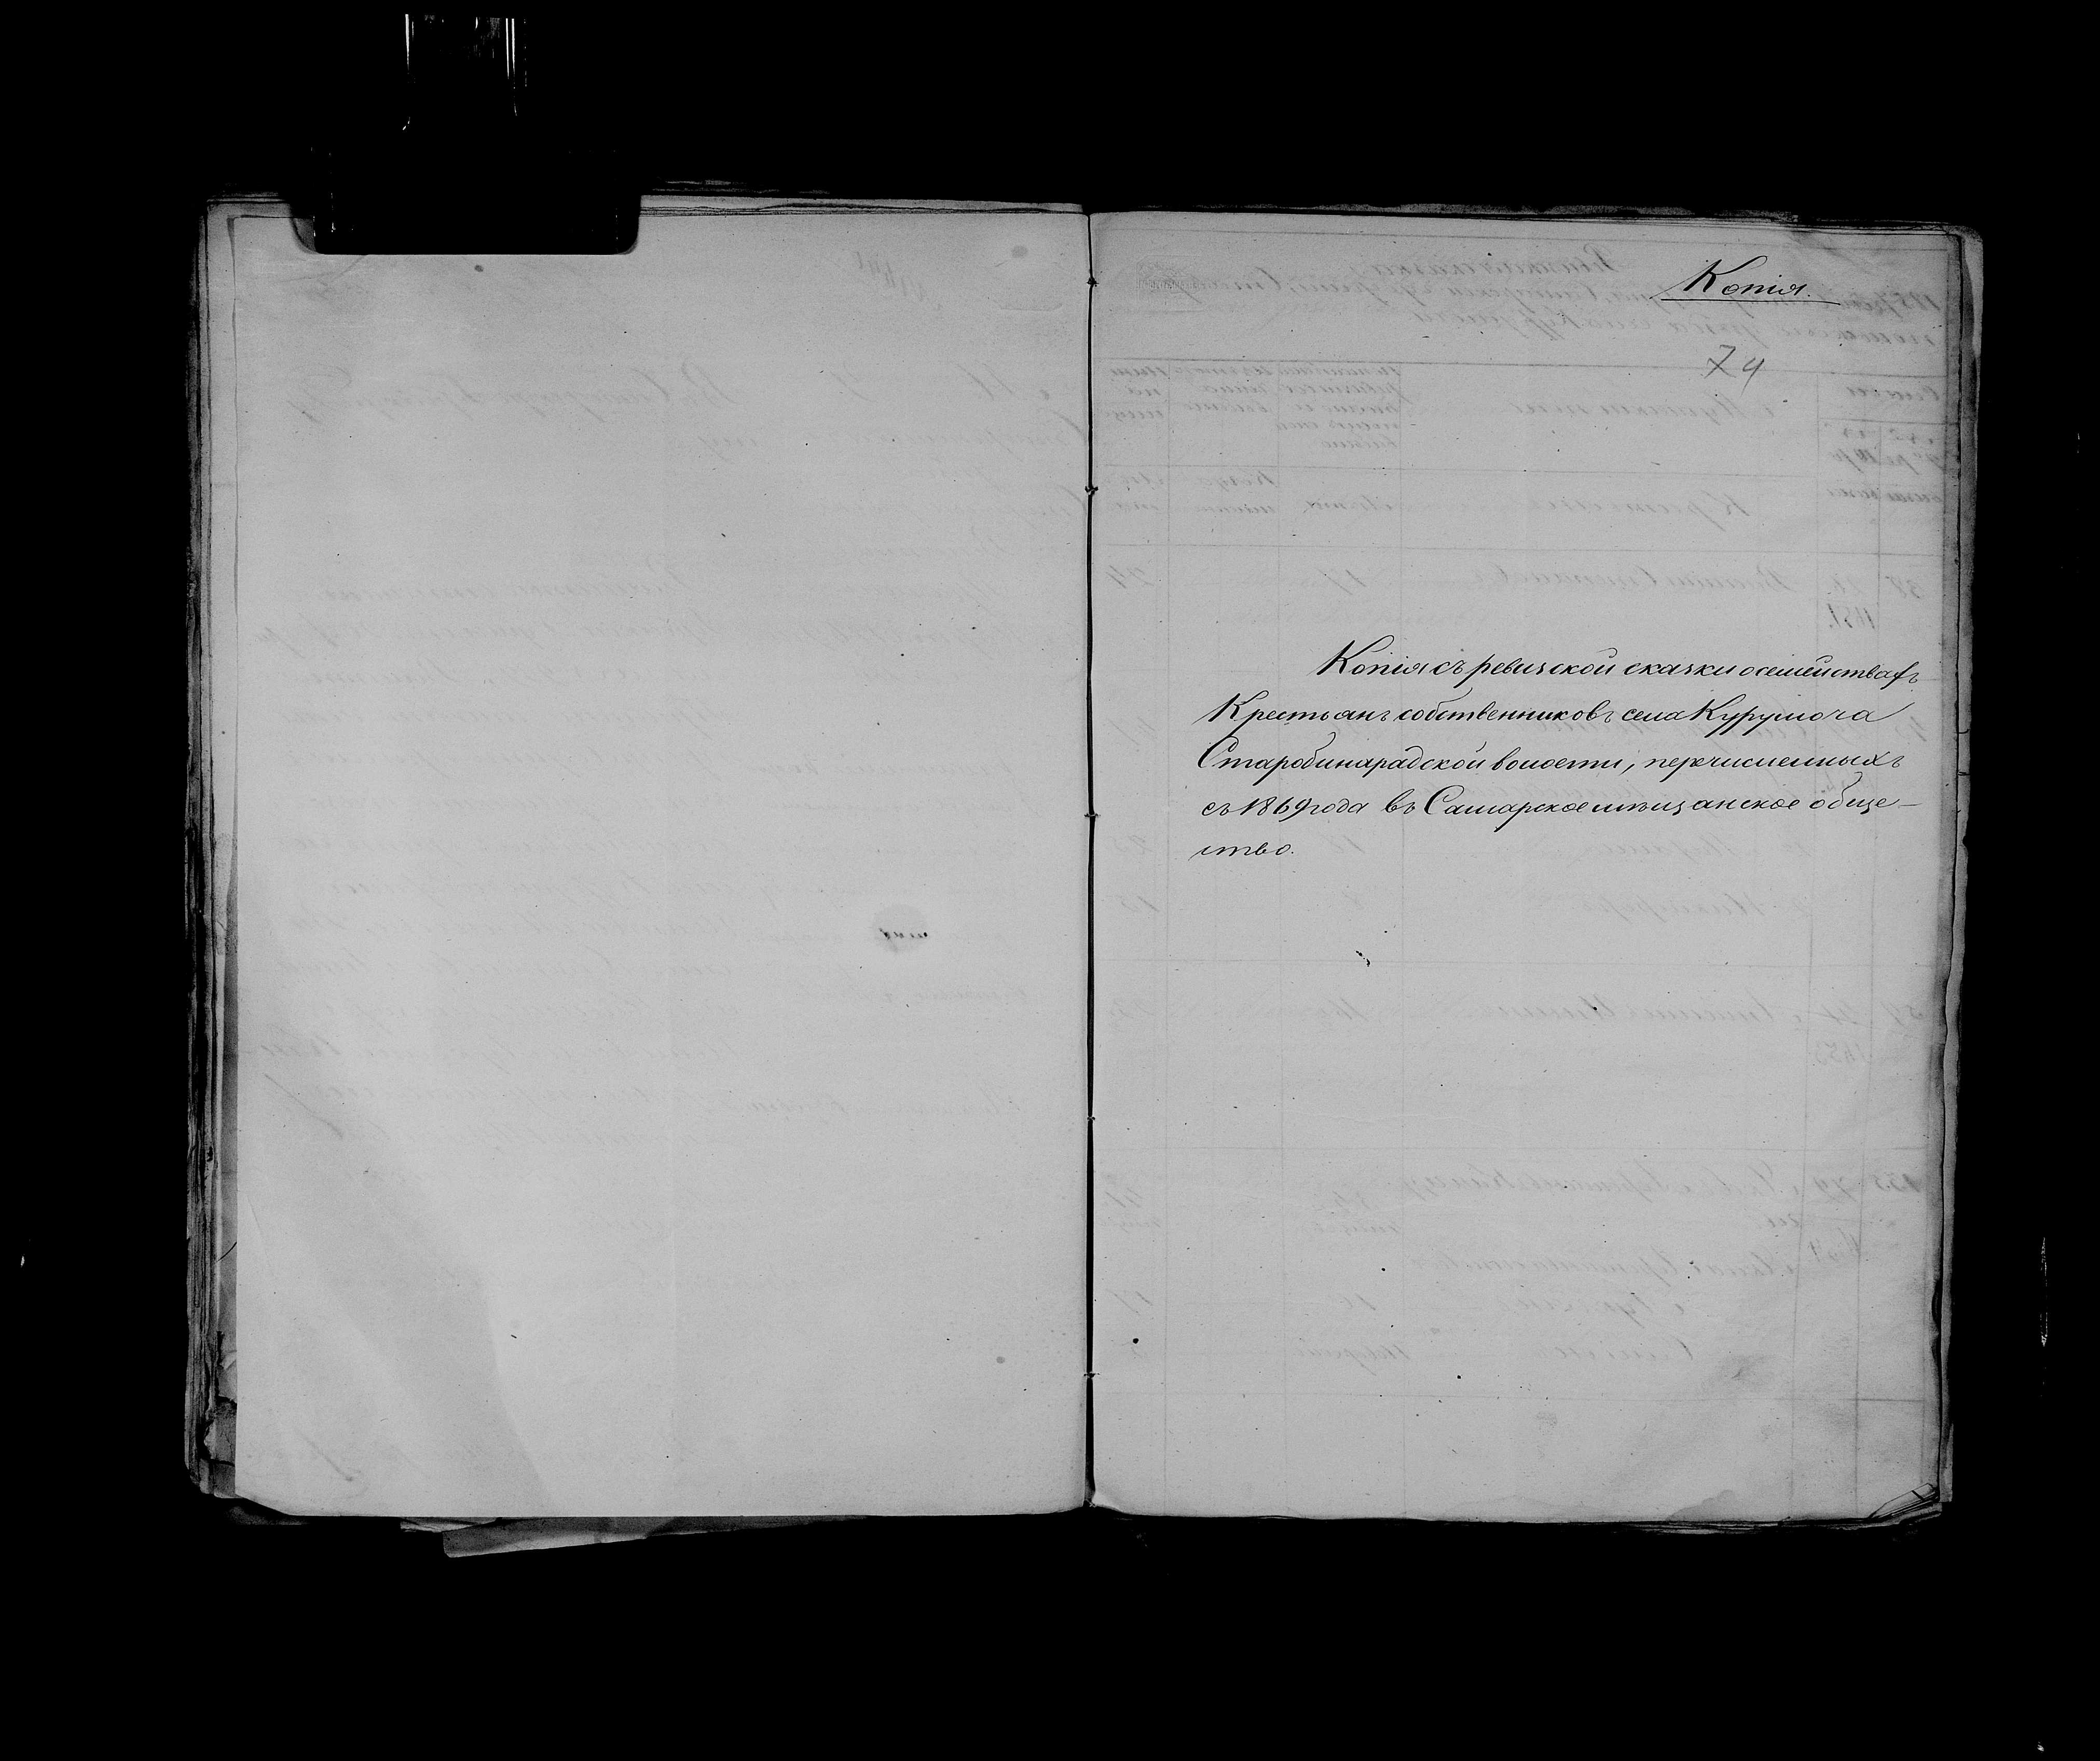 Копія.
74
Копія съ ревизской сказки о семействахъ
Крестьянъ собственниковъ села Курумоча
Старобинарадской волости, перечисленныхъ
съ 1869 года въ Самарское мѣщанское обще-
ство.